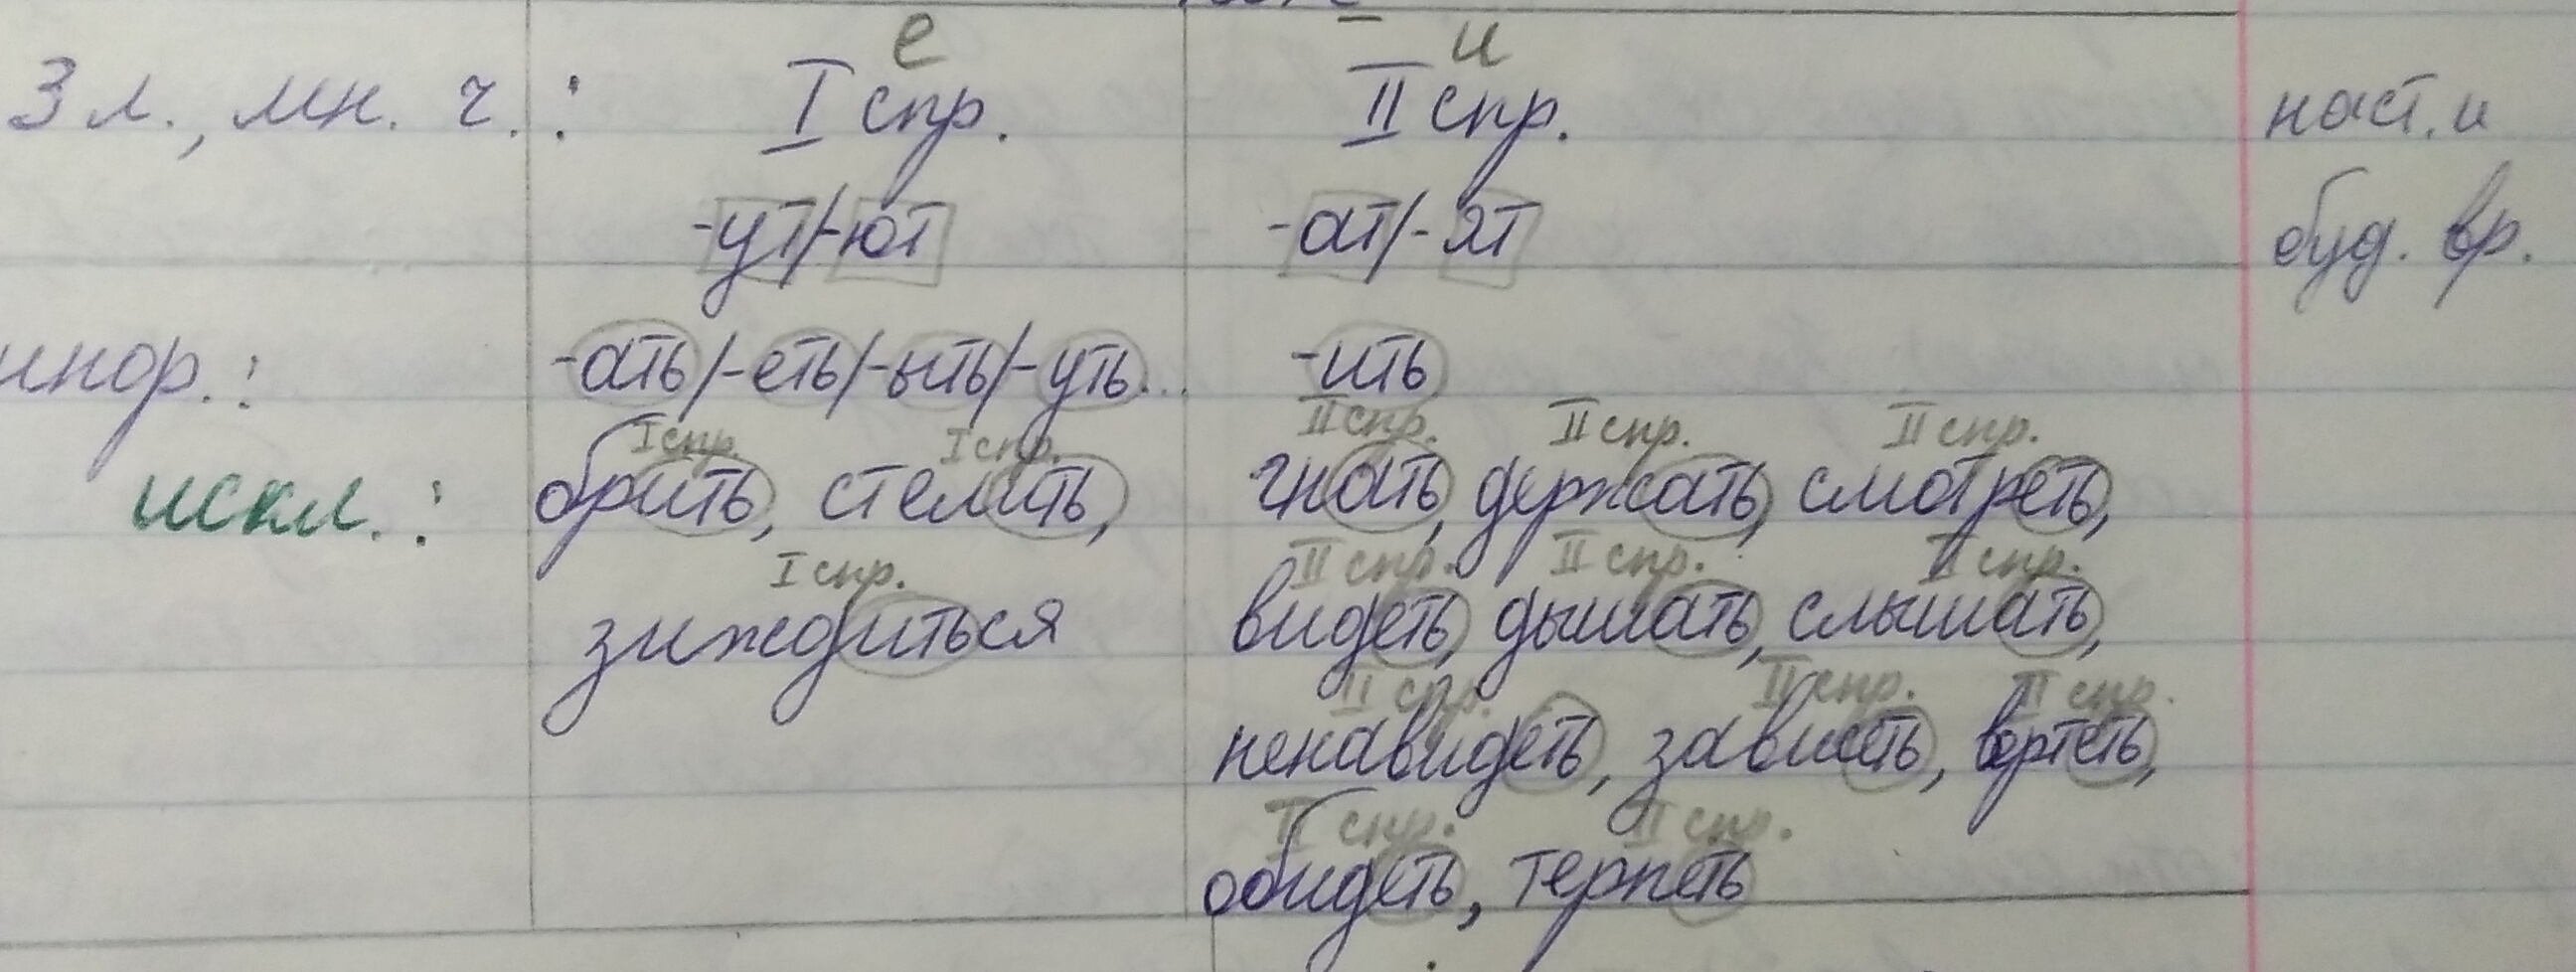 е и
3 л., мн. ч.: I спр. II спр. наст. и
-ут/-ют -ат/-ят буд. вр.
инф.: -ать/-еть/-ыть/-уть... -ить
I спр. I спр. II спр. II спр. II спр.
искл.: брить, стелить, гнать, держать, смотреть,
I спр. II спр. II спр. II спр.
зиждиться видеть, дышать, слышать,
II спр. II спр. II спр.
ненавидеть, зависеть, вертеть,
II спр. II спр.
обидеть, терпеть